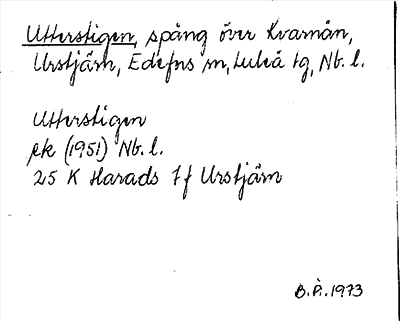 Utterstigen, spång över Kvarnån,
Urstjärn, Edefors sn, Luleå tg, Nb. l.
Utterstigen
ek (1951) Nb. l.
25 K Harads 7f Urstjärn
B. P. 1973